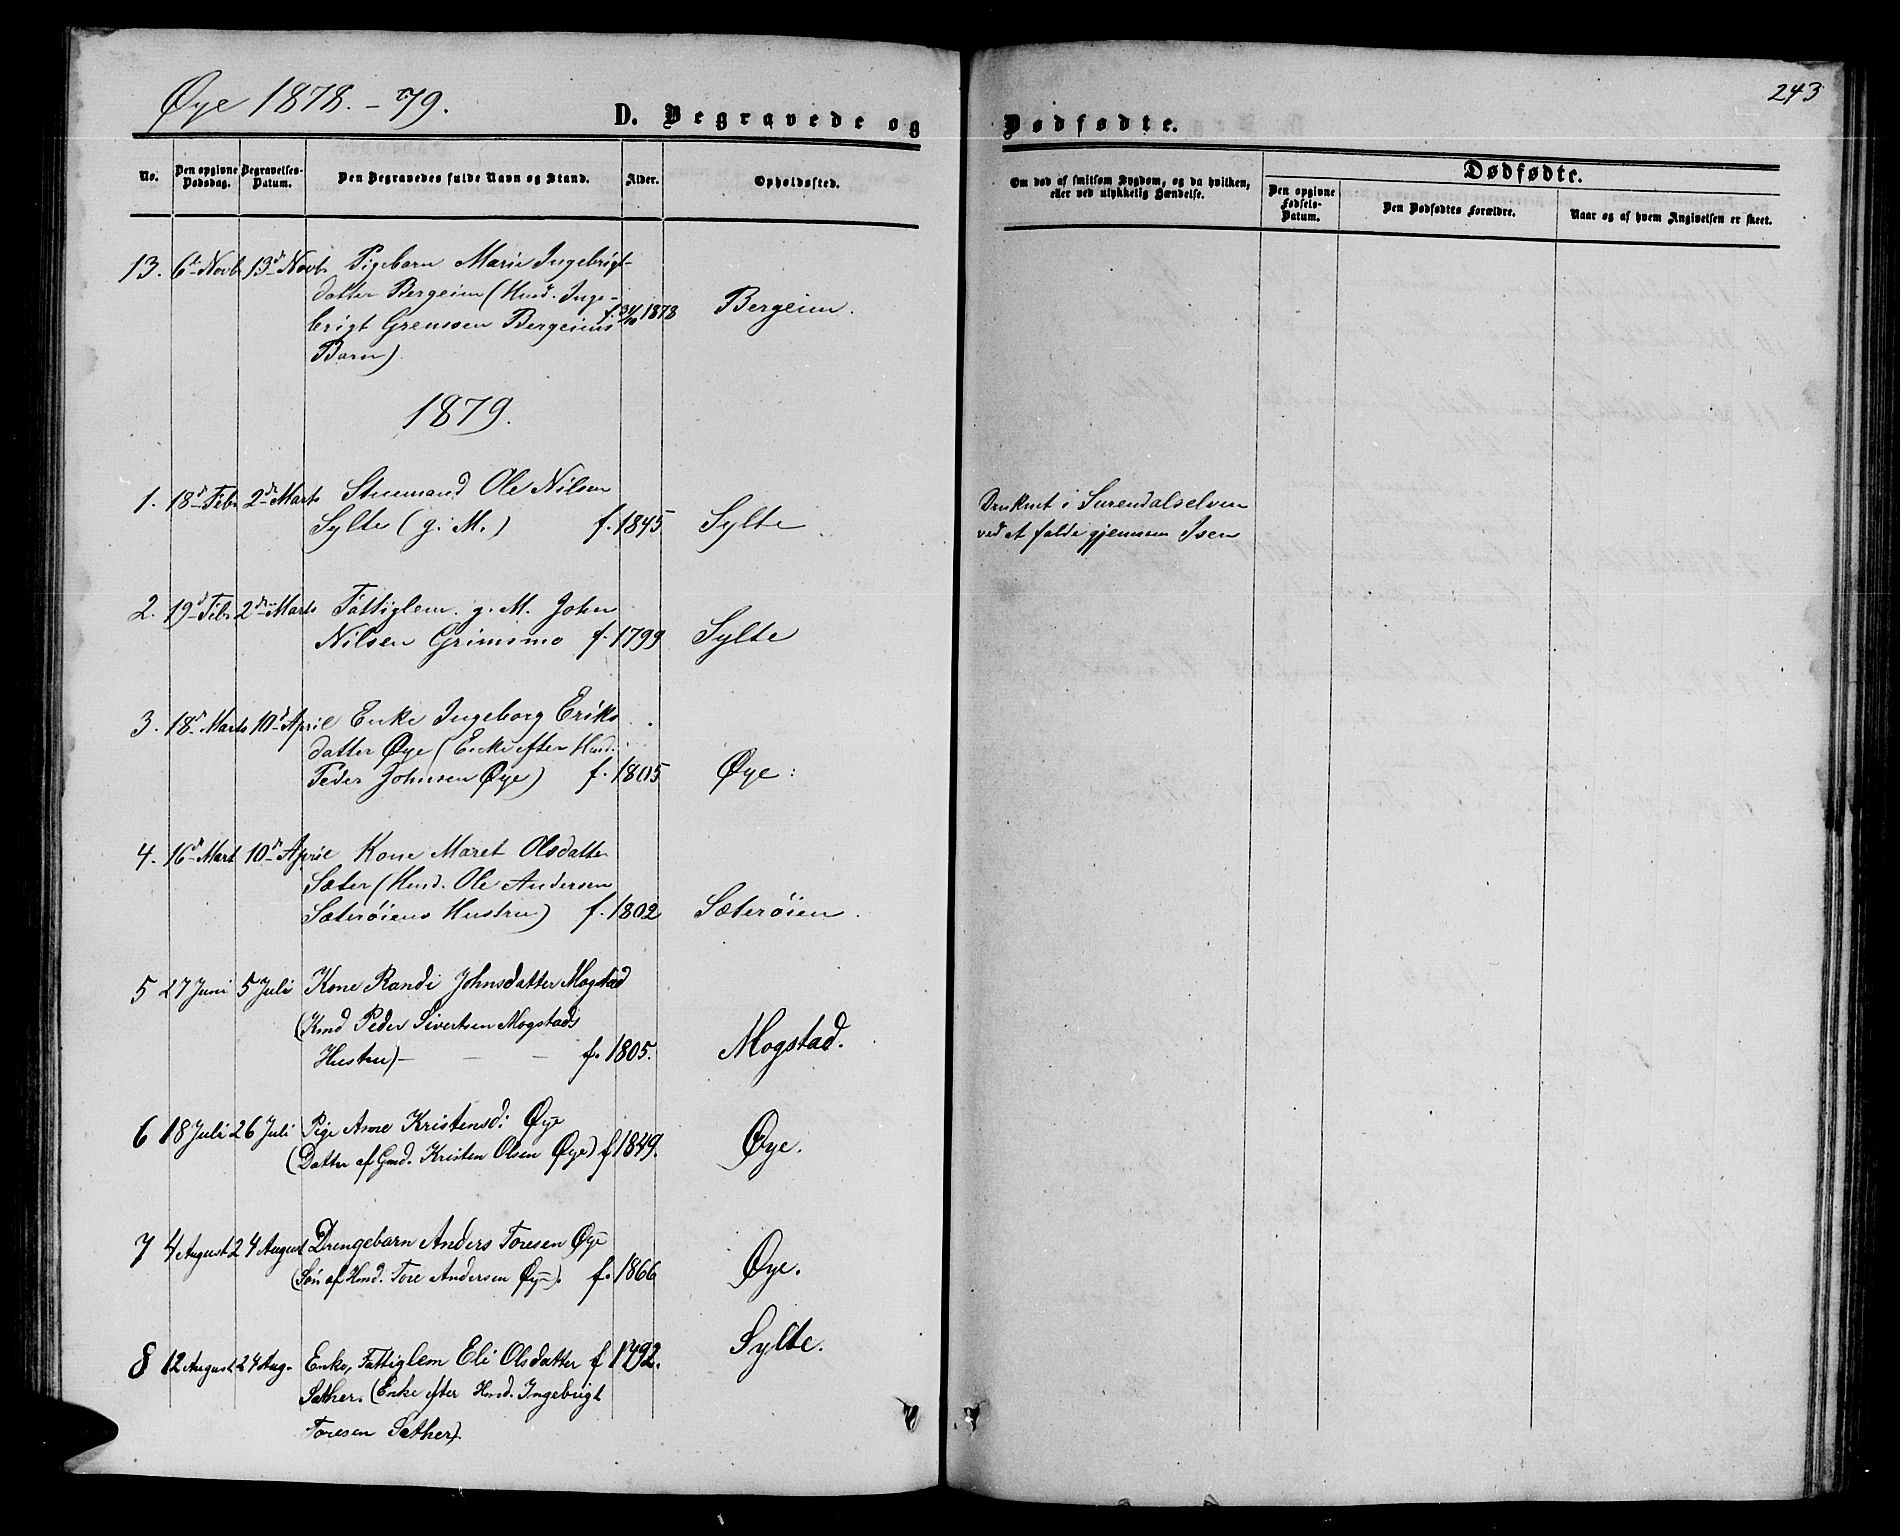 Øye 1878.-79.
243
D. Begravede og
Dødfødte.
No.
Den opgivne Dødsdag.
Begravelses-Datum.
Den Begravedes fulde Navn og Stand.
Alder.
Opholdssted.
Om død af smitsom Sygdom, og da hvilken,
eller ved ulykkelig Hændelse.
Dødfødte.
Den opgivne Fødsels-Datum.
Den Dødfødtes Forældre.
Naar og af hvem Angivelsen er skeet.
13. 6te Novb 13d Novb Pigebarn Marie Ingebrigt-
datter Bergeim (Hmd. Inge-
brigt Grenssen Bergeims f. 31/10 1878 Bergeim.
Barn)
1879.
1. 18d Febr 2den Marts Strumand Ole Nilsen
Sylte (g. M.) f. 1845 Sylte
Druknet i Surendalselven
ved at falde gjennem Isen
2. 19d Febr 2den Marts Fattiglem. g. M. John
Nilsen Grimsmo f. 1799 Sylte
3. 18d Marts 10d April Enke Ingeborg Eriks
datter Øye (Enke efter Hmd.
Peder Johnsen Øye) f. 1805 Øye:
4. 16d Mart 10d April Kone Maret Olsdatter
Sæter (Hmd. Ole Andersen
Sæterøiens Hustru) f. 1802 Sæterøien.
5 27 Juni 5 Juli Kone Randi Johnsdatter Mogstad
(Kmd Peder Sivertsen Mogstads
Hustru) - - - f. 1805. Mogstad.
6 18 Juli 26 Juli Pige Anne Kristensd: Øye
(Datter af Gmd. Kristen Olsen Øye) f 1849. Øye.
7 4 August 24 August Drengebarn Anders Toresen Øye
(Søn af Hmd. Tore Andersen Øye). f. 1866 Øye.
8 12 August 24 Aug. Enke, Fattiglem Eli Olsdatter f 1792. Sylte.
Sæther. (Enke efter Hmd. Ingebrigt
Toresen Sæther).